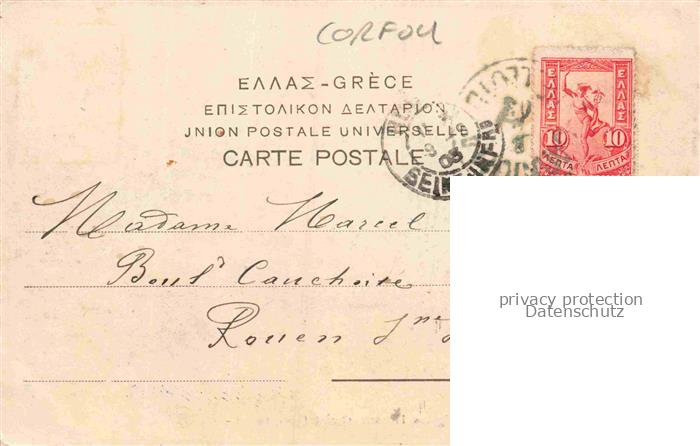 CORFOU
ΕΛΛΑΣ-GRÈCE
ΕΠΙΣΤΟΛΙΚΟΝ ΔΕΛΤΑΡΙΟΝ
UNION POSTALE UNIVERSELLE
CARTE POSTALE
ΕΛΛΑΣ ΕΛΛΑΣ
10 10
ΛΕΠΤΑ ΛΕΠΤΑ
03
Madame Marcel
Boulᵈ Cauchoise
Rouen
privacy protection
Datenschutz